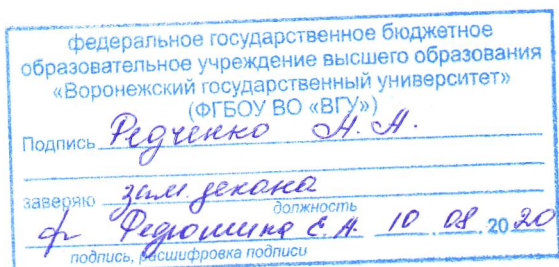 федеральное государственное бюджетное
образовательное учреждение высшего образования
«Воронежский государственный университет»
(ФГБОУ ВО «ВГУ»)
Подпись Редченко
заверяю зам декана
должность
Федюшина Е.А. 10 08 2020
подпись, расшифровка подписи